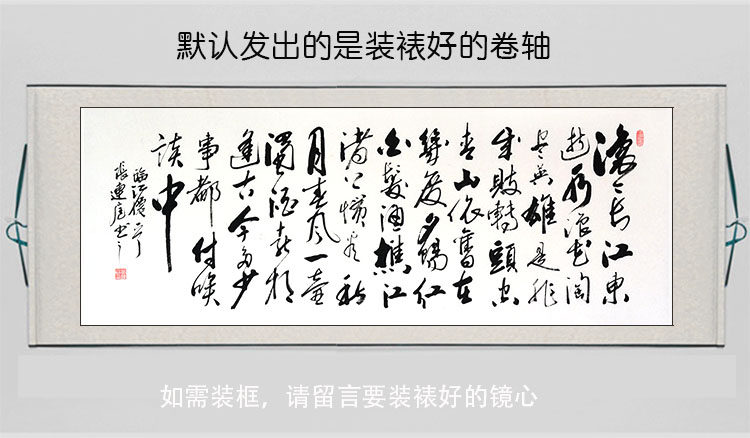 默认发出的是装裱好的卷轴
滚々长江东
逝水浪花淘
尽英雄是非
成败轉頭空
青山依舊在
幾度夕陽红
白髮漁樵江
渚上惯看秋
月春风一壶
濁酒喜相
逢古今多少
事都付笑
谈中
如需装框，请留言要装裱好的镜心